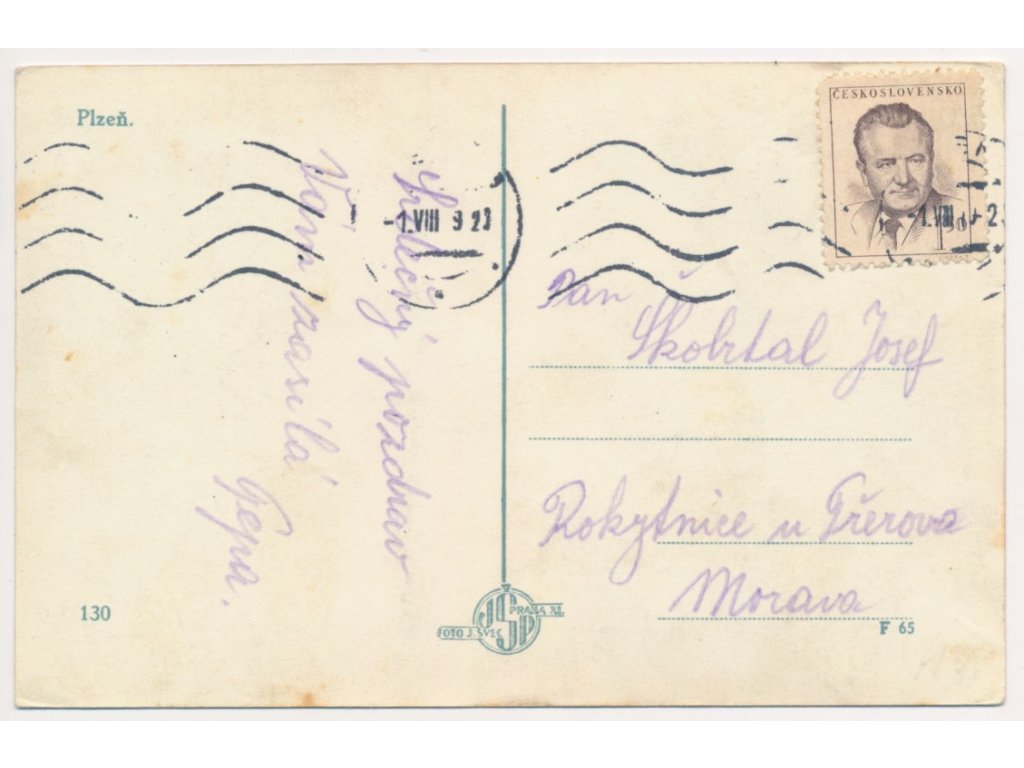 Plzeň.
ČESKOSLOVENSKO
-1.VIII 9 23
-1.VIII
Srdečný pozdrav
Vám zasílá
Pepa.
Pán
Škobrtal Josef
Rokytnice u Přerova
Morava
130
JŠP
PRAHA XII
FOTO J. ŠVEC
F 65